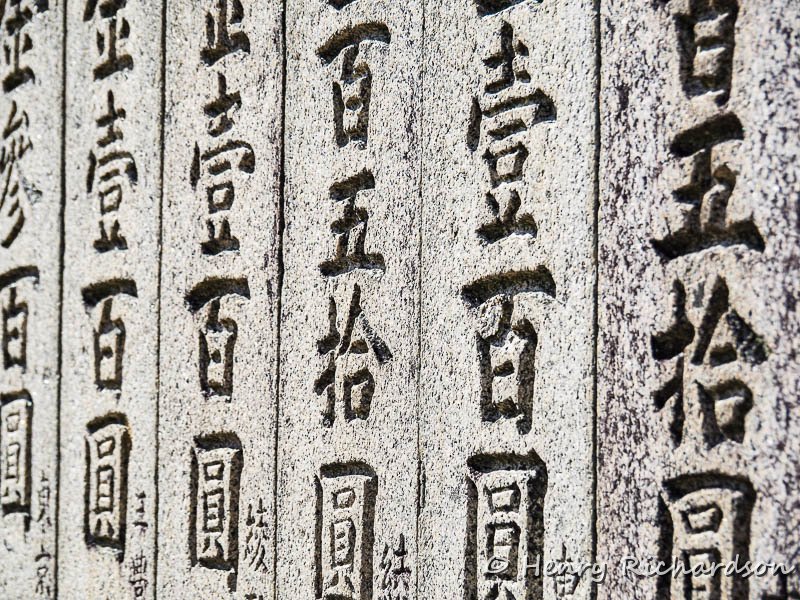 百五拾圓
壹百圓
百五拾圓
金壹百圓
金壹百圓
金參百圓
東京
© Henry Richardson